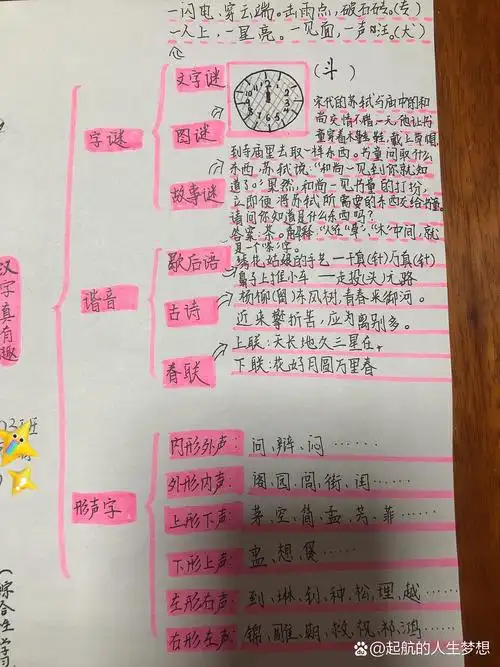 一闪电、穿云端。击雨点，破石砖。(专)
一人上，一星亮。一见面，一声汪。(犬)
文字谜
(斗)
12
宋代的苏轼与庙中的和
尚交情不错，一天，他让书
童穿着木鞋，戴上草帽
到寺庙里去取一样东西。书童问取什么
东西，苏轼说："和尚一见到你就知
道了。"果然，和尚一见书童的打扮，
立即便将苏轼所需要的东西交给书童。
请问你知道是什么东西吗？
答案：茶。解释："人在"草""木"中间，就
是一个"茶"字。
字谜
图谜
故事谜
歇后语
绣花姑娘的手艺——千真(针)万真(针)
鼻子上推小车——走投(头)无路
谐音
古诗
杨柳(留)东风树，青春夹御河。
近来攀折苦，应为离别多。
春联
上联：天长地久三星在，
下联：花好月圆万里春
汉字真有趣
班
形声字
内形外声：问、辩、闷……
外形内声：阁、园、阎、街、闺……
上形下声：茅、空、简、孟、芳、菲……
下形上声：盅、想、煲……
左形右声：到、琳、钊、种、松、理、越……
右形左声：锦、雕、期、救、视、祁、鸿……
（综合性学习
@起航的人生梦想